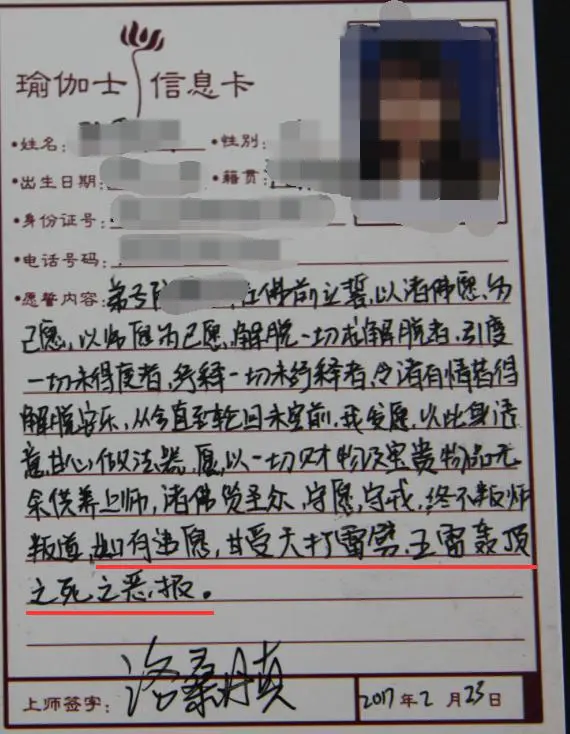 瑜伽士 信息卡
•姓名:
•性别:
•出生日期:
•籍贯:
•身份证号:
•电话号码:
•愿誓内容: 弟子 在佛前立誓,以诸佛愿为
己愿,以师愿为己愿,解脱一切求解脱者,引度
一切未得度者,绎释一切未绎释者,令诸有情皆得
解脱安乐,从今直至轮回未空前,我发愿,以此身语
意,甘心做法器,愿以一切财物及宝贵物品无
余供养上师,诸佛贤圣众,守愿,守戒,终不叛师
叛道,如有违愿,甘受天打雷劈,五雷轰顶
之死之恶报。
上师签字: 洛桑丹真 2017年2月23日